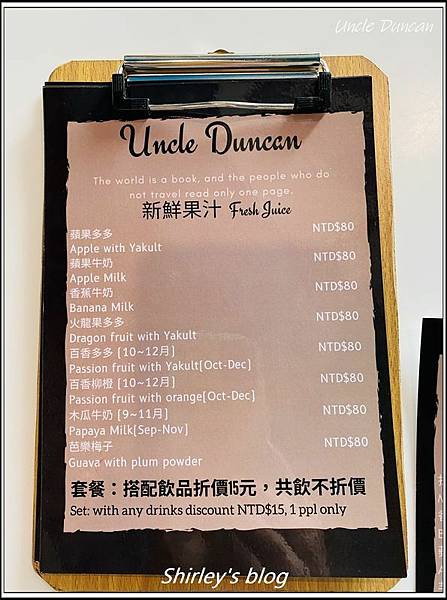 Uncle Duncan
Uncle Duncan
The world is a book, and the people who do
not travel read only one page.
新鮮果汁 Fresh Juice
蘋果多多 NTD$80
Apple with Yakult
蘋果牛奶 NTD$80
Apple Milk
香蕉牛奶 NTD$80
Banana Milk
火龍果多多 NTD$80
Dragon fruit with Yakult
百香多多 [10~12月] NTD$80
Passion fruit with Yakult[Oct-Dec]
百香柳橙 [10~12月] NTD$80
Passion fruit with orange[Oct-Dec]
木瓜牛奶 [9~11月] NTD$80
Papaya Milk[Sep-Nov]
芭樂梅子 NTD$80
Guava with plum powder
套餐：搭配飲品折價15元，共飲不折價
Set: with any drinks discount NTD$15, 1 ppl only
Shirley's blog